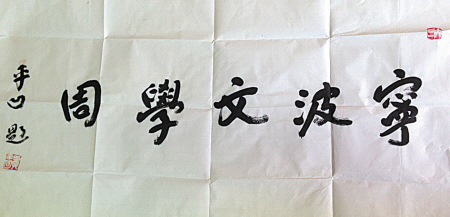 寧波文學周
平凹題